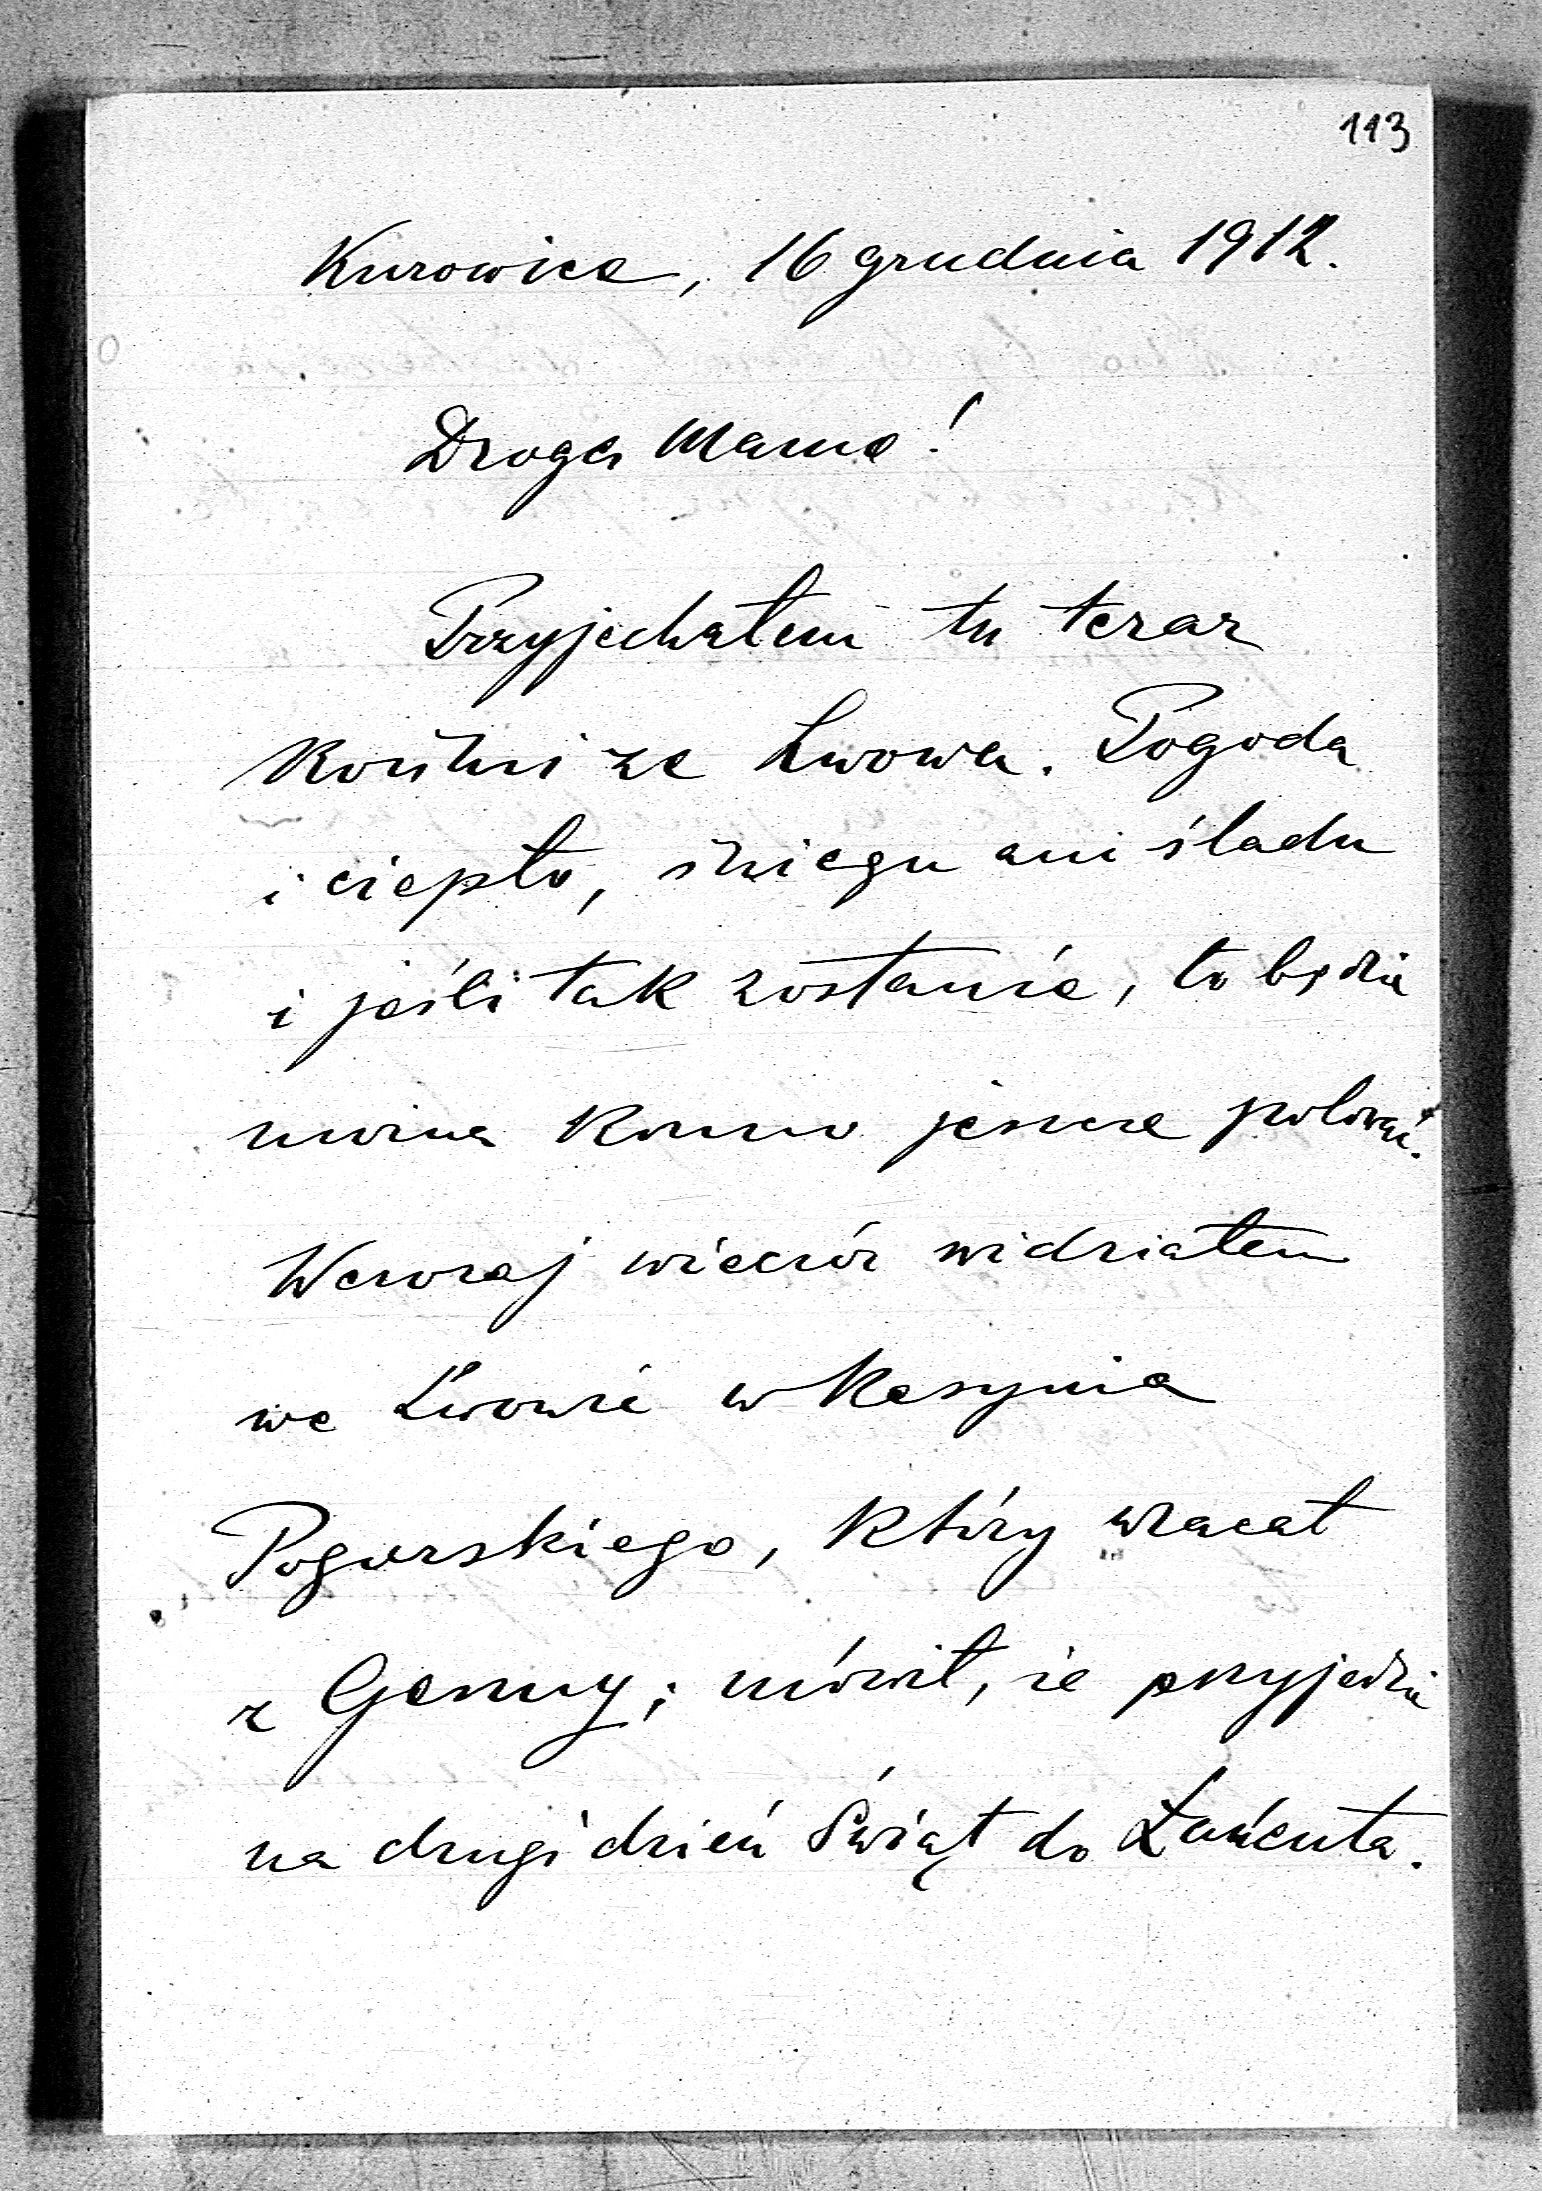 113
Kurowice, 16 grudnia 1912.
Droga Mamo!
Przyjechałem tu teraz
końmi ze Lwowa. Pogoda
i ciepło, śniegu ani śladu
i jeśli tak zostanie, to będzie
można konno jeszcze polować.
Wczoraj wieczór widziałem
we Lwowie w Kasynie
Pogorskiego, który wracał
z Genuy; mówił, że przyjedzie
na drugi dzień Świąt do Łańcuta.